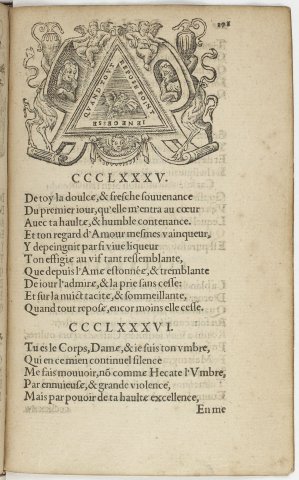 CCCLXXXV.
De toy la doulce, & fresche souuenance
Du premier iour, qu'elle m'entra au cœur
Auec ta haulte, & humble contenance.
Et ton regard d'Amour mesmes vainqueur,
Y depeingnit par si viue liqueur
Ton effigie au vif tant ressemblante,
Que depuis l'Ame estonnée, & tremblante
De iour l'admire, & la prie sans cesse:
Et sur la nuict tacite, & sommeillante,
Quand tout repose, encor moins elle cesse.
CCCLXXXVI.
Tu es le Corps, Dame, & ie suis ton vmbre,
Qui en ce mien continuel silence
Me fais mouuoir, nō comme Hecate l'Vmbre,
Par ennuieuse, & grande violence,
Mais par pouoir de ta haulte excellence,
En me